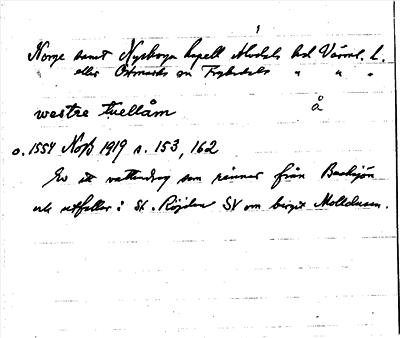 Norge samt Nyskoga kapell Älvdals hd Värml. l.
eller Östmarks sn Fryksdals " " "
westre tuellåm å
o. 1554 NoB 1919 s. 153, 162
Ev. det vattendrag som rinner från Backsjön
och utfaller i St. Röjden SV om